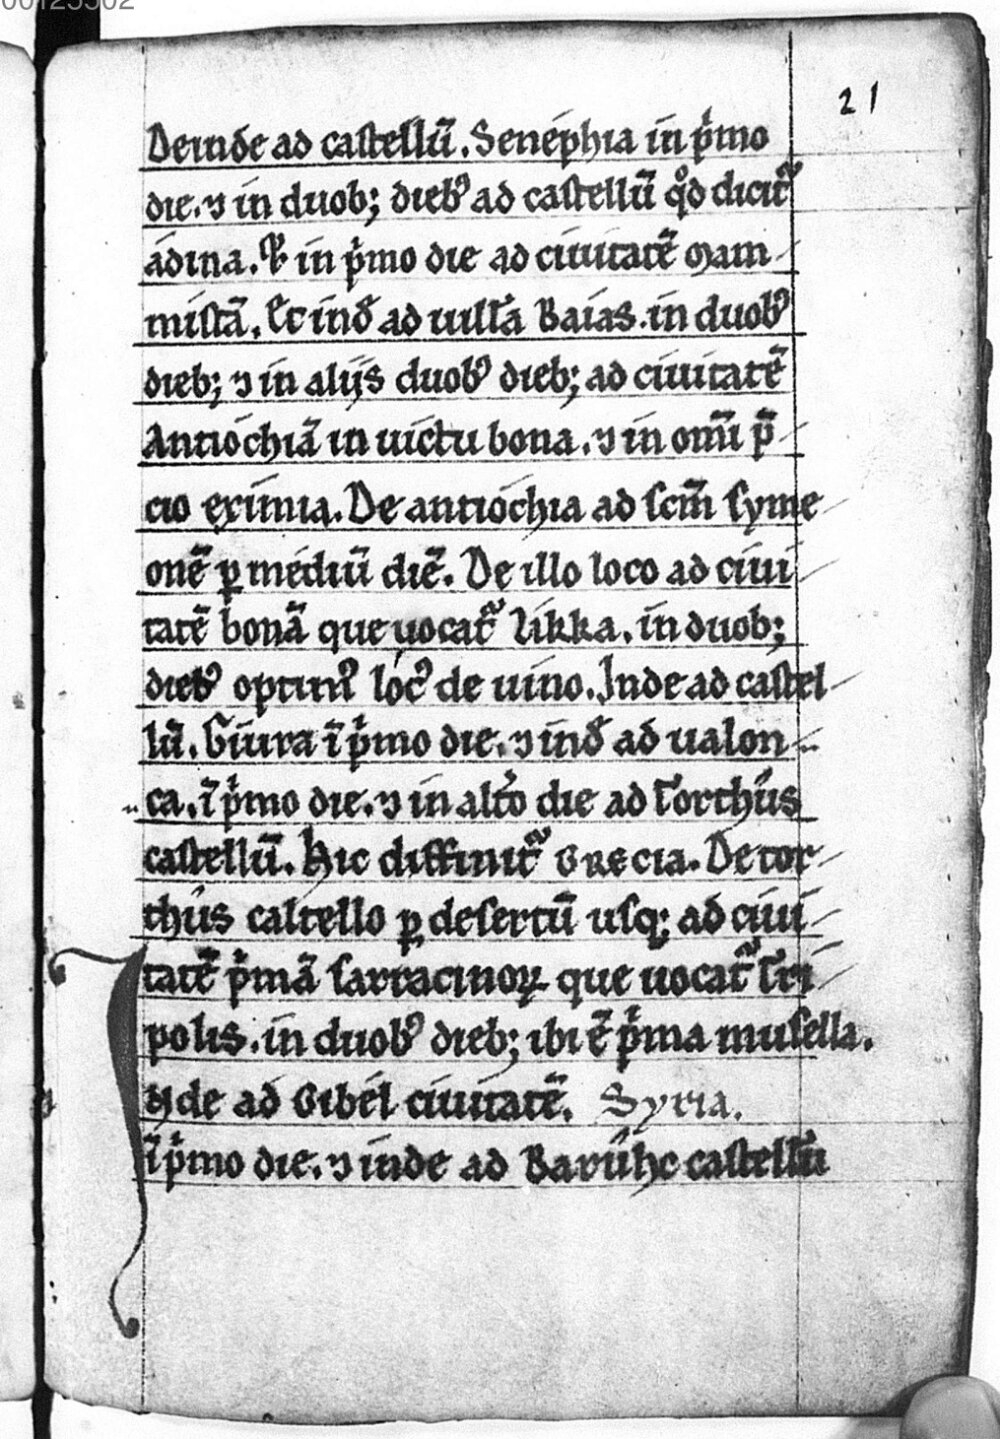 00125502
21
Deinde ad castellū. Senephia in p̄mo
die. ⁊ in duob; dieb⁹ ad castellū qd̊ dicit᷑
adina. in p̄mo die ad ciuitatē mam
mistā. Et ind̄ ad uillā Baias. in duob⁹
dieb; ⁊ in alijs duob⁹ dieb; ad ciuitatē
Antiochiā in uictu bona. ⁊ in om̄i p̄
cio eximia. De antiochia ad scm̄ syme
onē ꝑ mediū diē. De illo loco ad ciui
tatē bonā que uocat᷑ likka. in duob;
dieb⁹ optim⁹ loc⁹ de uino. Inde ad castel
lū. Giura ī p̄mo die. ⁊ ind̄ ad ualon
ca. ī p̄mo die. ⁊ in alt̄o die ad Torthus
castellū. Hic diffinit᷑ Grecia. De tor
thus castello ꝑ desertū usq; ad ciui
tatē p̄mā sarracinoꝝ que uocat᷑ Tri
polis. in duob⁹ dieb; ibi ē p̄ma musella.
Inde ad Gibel ciuitatē. Syria.
ī p̄mo die. ⁊ inde ad Baruhc castellū